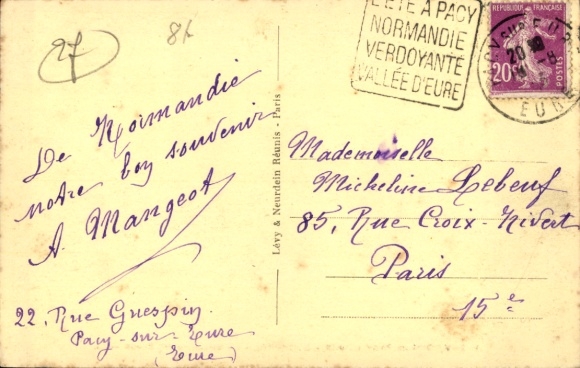 27
81
L'ÉTÉ A PACY
NORMANDIE
VERDOYANTE
VALLÉE D'EURE
RÉPUBLIQUE FRANÇAISE
20c
POSTES
PACY SUR EURE
20
EURE
De Normandie
notre bon souvenir
A. Mangeot
22, Rue Guespin
Pacy-sur-Eure
(Eure)
Lévy & Neurdein Réunis - Paris
Mademoiselle
Micheline Lebeuf
85, Rue Croix-Nivert
Paris
15e